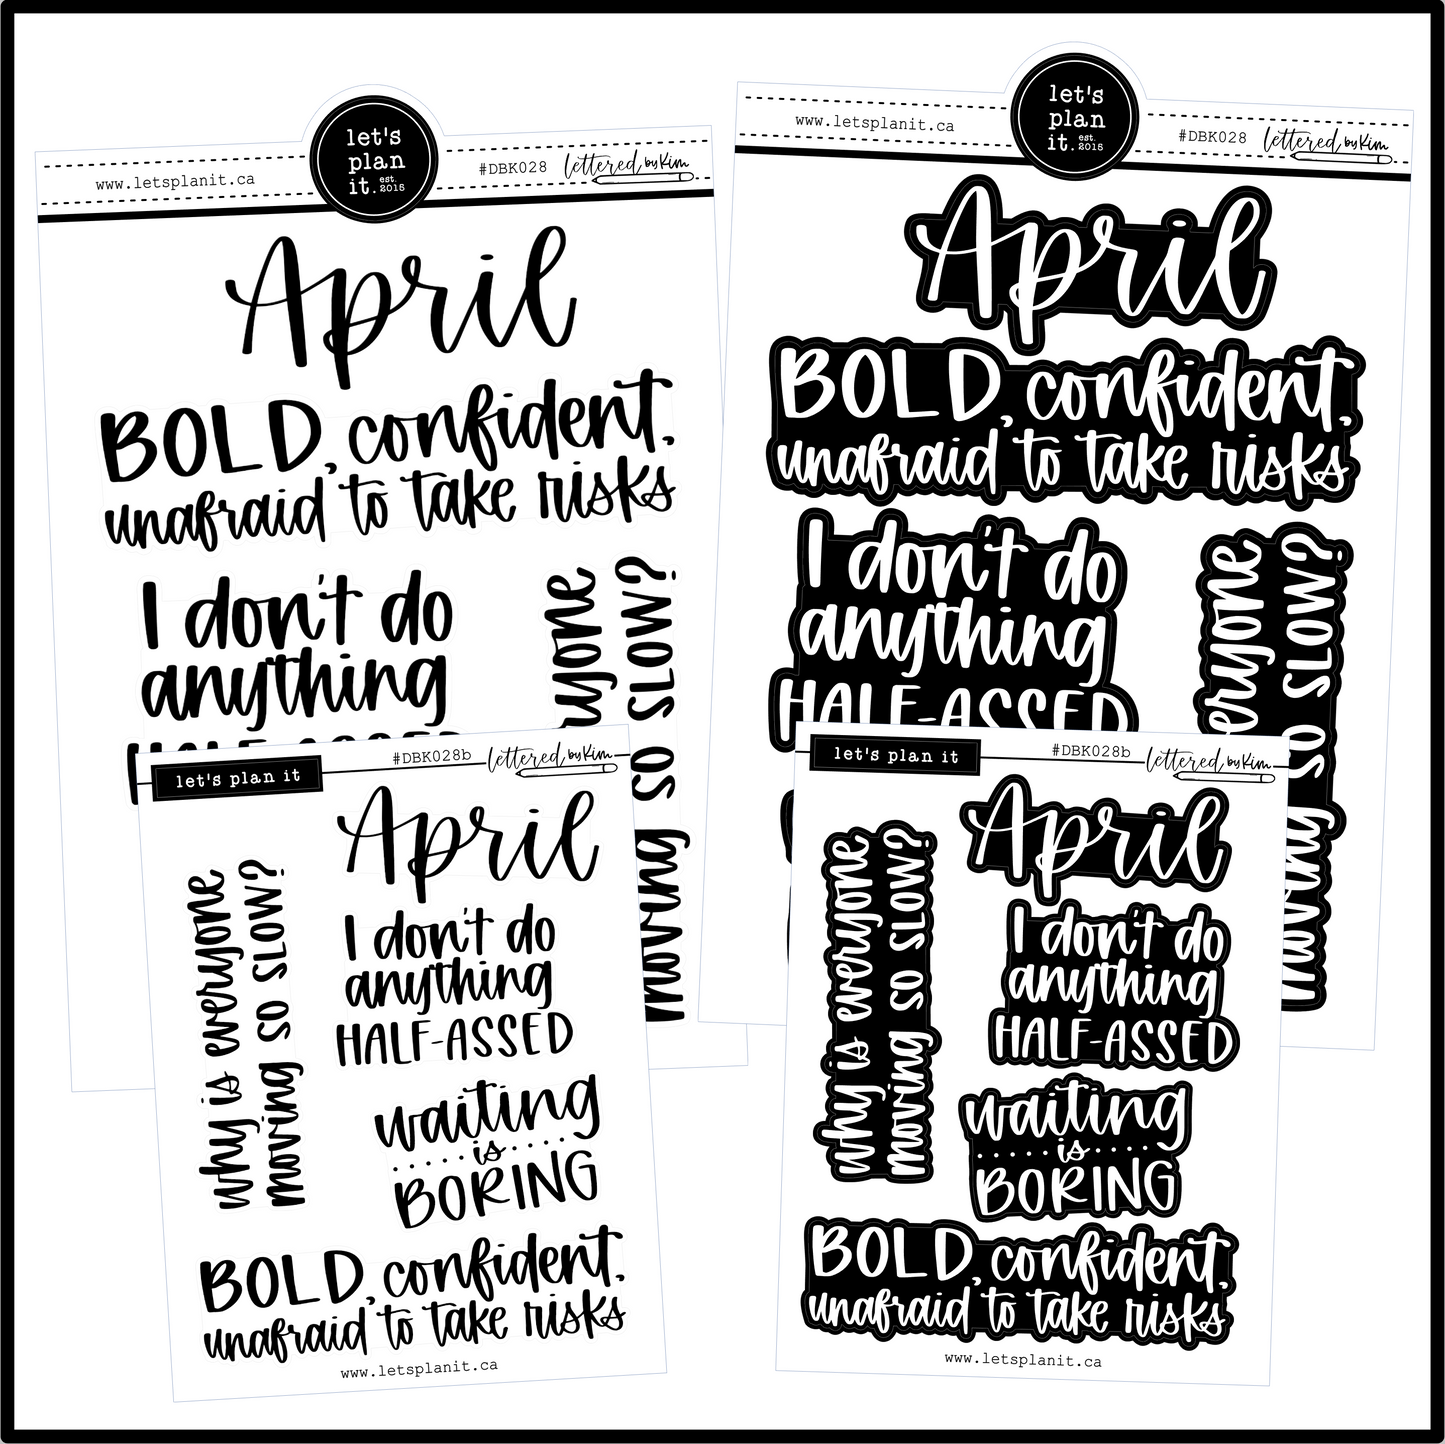 www.letsplanit.ca
let's
plan
it. est. 2015
#DBK028
lettered by Kim
April
BOLD, confident,
unafraid to take risks
I don't do
anything
HALF-ASSED
eryone
moving so SLOW?
www.letsplanit.ca
let's
plan
it. est. 2015
#DBK028
lettered by Kim
April
BOLD, confident,
unafraid to take risks
I don't do
anything
HALF-ASSED
eryone
moving so SLOW?
let's plan it
#DBK028b
lettered by Kim
April
why is everyone
moving so SLOW?
I don't do
anything
HALF-ASSED
waiting
is
BORING
BOLD, confident,
unafraid to take risks
www.letsplanit.ca
let's plan it
#DBK028b
lettered by Kim
April
why is everyone
moving so SLOW?
I don't do
anything
HALF-ASSED
waiting
is
BORING
BOLD, confident,
unafraid to take risks
www.letsplanit.ca